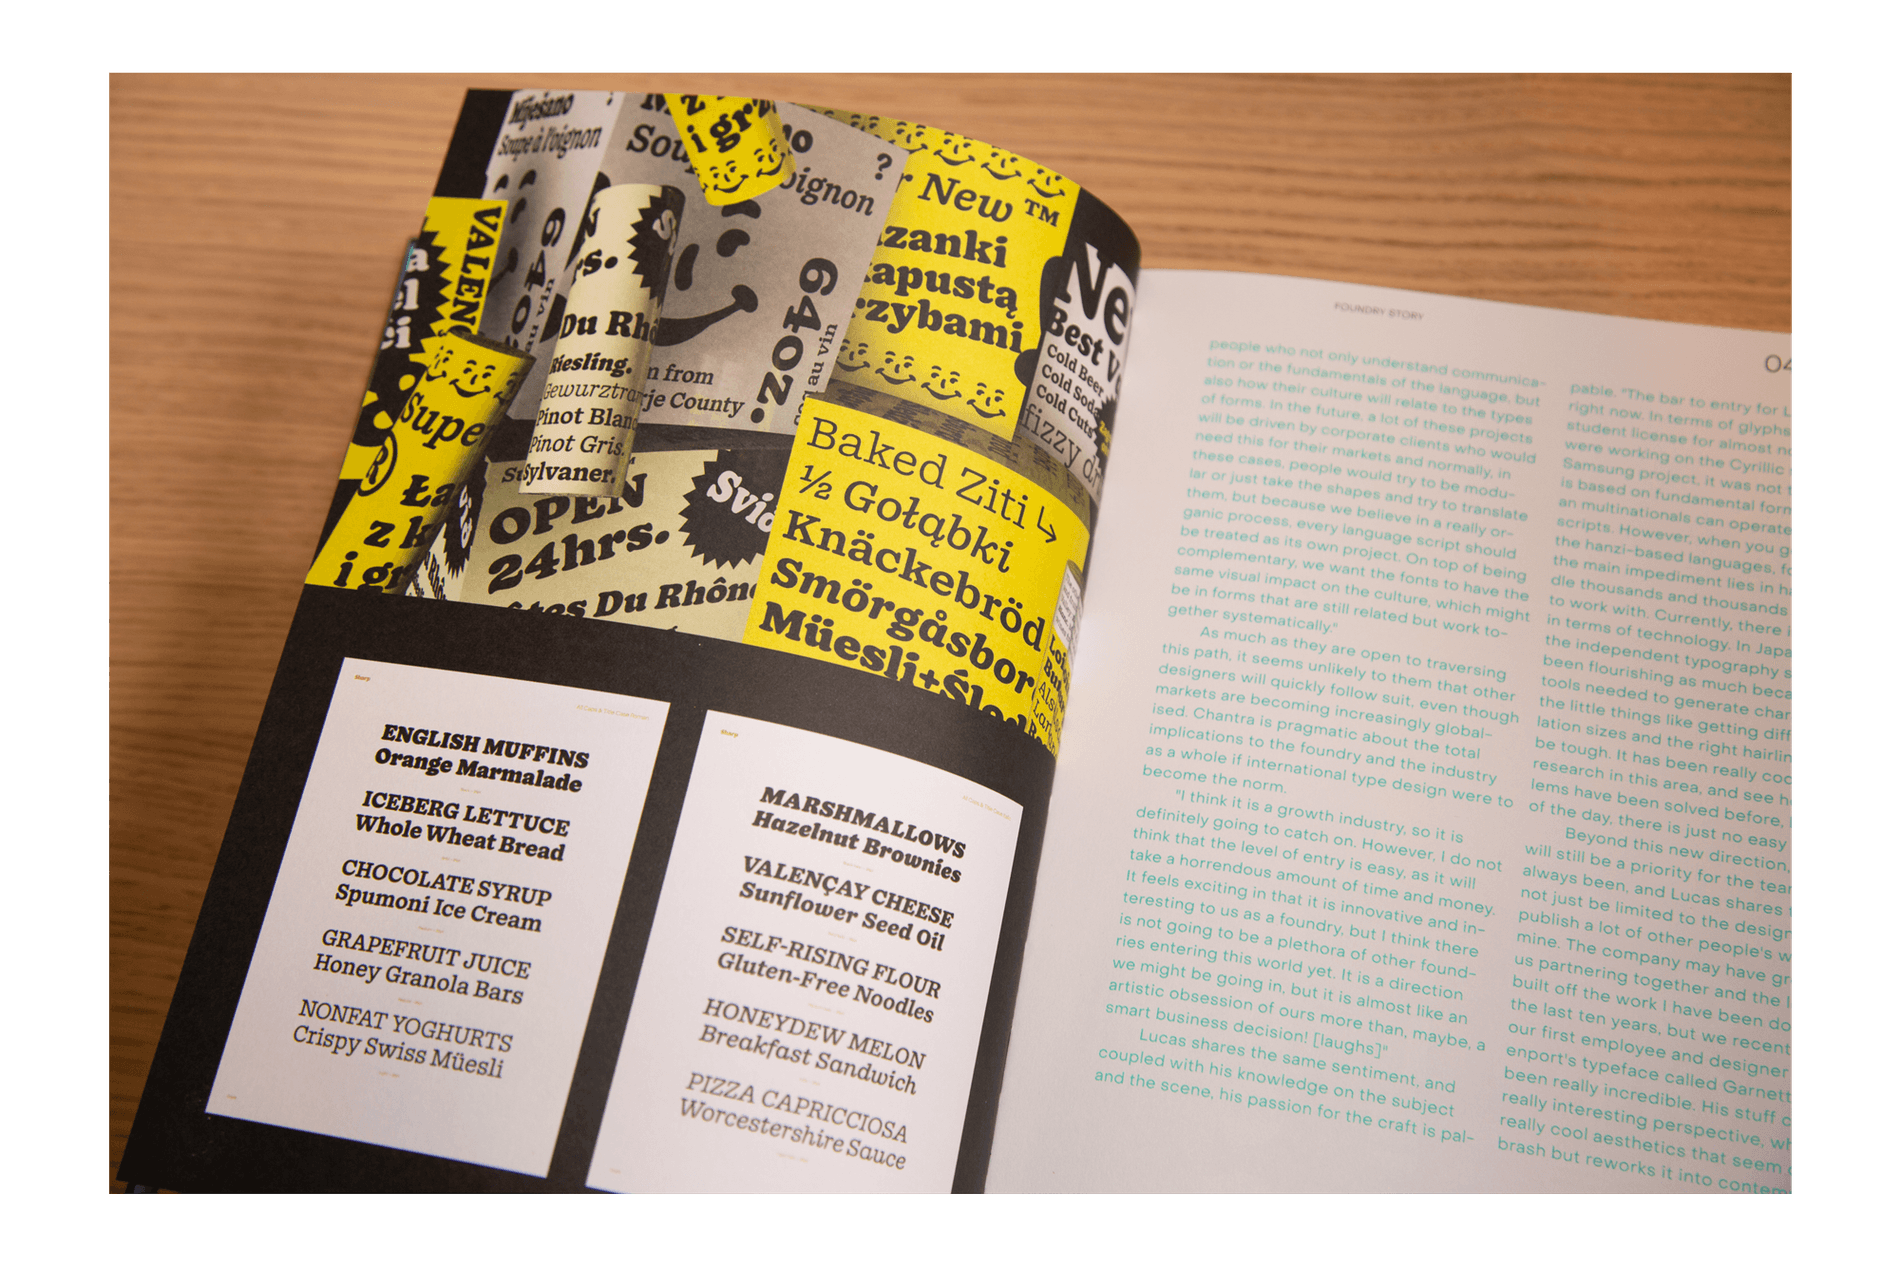 Mijesano
?
Soupe à l'oignon
64oz.
au vin
Sou
oignon
?
64oz.
au vin
n from
rje County
z
i gr
VALENÇ
r New ™
zanki
kapustą
rzybami
Ne
Best Ve
Cold Beer
Cold Soda
Cold Cuts
fizzy dr
rs.
Du Rh
Riesling.
Gewurztra
Pinot Blanc
Pinot Gris.
Sylvaner.
Super
®
Ła
z k
i gr
OPEN
24hrs.
Svid
tes Du Rhône
Baked Ziti ↳
½ Gołąbki
Knäckebröd
Smörgåsbor
Müesli+Śled
Sharp
ENGLISH MUFFINS
Orange Marmalade
ICEBERG LETTUCE
Whole Wheat Bread
CHOCOLATE SYRUP
Spumoni Ice Cream
GRAPEFRUIT JUICE
Honey Granola Bars
NONFAT YOGHURTS
Crispy Swiss Müesli
Sharp
MARSHMALLOWS
Hazelnut Brownies
VALENÇAY CHEESE
Sunflower Seed Oil
SELF-RISING FLOUR
Gluten-Free Noodles
HONEYDEW MELON
Breakfast Sandwich
PIZZA CAPRICCIOSA
Worcestershire Sauce
FOUNDRY STORY
04
people who not only understand communica-
tion or the fundamentals of the language, but
also how their culture will relate to the types
of forms. In the future, a lot of these projects
will be driven by corporate clients who would
need this for their markets and normally, in
these cases, people would try to be modu-
lar or just take the shapes and try to translate
them, but because we believe in a really or-
ganic process, every language script should
be treated as its own project. On top of being
complementary, we want the fonts to have the
same visual impact on the culture, which might
be in forms that are still related but work to-
gether systematically."
As much as they are open to traversing
this path, it seems unlikely to them that other
designers will quickly follow suit, even though
markets are becoming increasingly global-
ised. Chantra is pragmatic about the total
implications to the foundry and the industry
as a whole if international type design were to
become the norm.
"I think it is a growth industry, so it is
definitely going to catch on. However, I do not
think that the level of entry is easy, as it will
take a horrendous amount of time and money.
It feels exciting in that it is innovative and in-
teresting to us as a foundry, but I think there
is not going to be a plethora of other found-
ries entering this world yet. It is a direction
we might be going in, but it is almost like an
artistic obsession of ours more than, maybe, a
smart business decision! [laughs]"
Lucas shares the same sentiment, and
coupled with his knowledge on the subject
and the scene, his passion for the craft is pal-
pable. "The bar to entry for L
right now. In terms of glyphs
student license for almost no
were working on the Cyrillic
Samsung project, it was not t
is based on fundamental form
an multinationals can operate
scripts. However, when you g
the hanzi-based languages, fo
the main impediment lies in ha
dle thousands and thousands
to work with. Currently, there i
in terms of technology. In Japa
the independent typography s
been flourishing as much beca
tools needed to generate char
the little things like getting diff
lation sizes and the right hairlin
be tough. It has been really coo
research in this area, and see h
lems have been solved before,
of the day, there is just no easy
Beyond this new direction,
will still be a priority for the tea
always been, and Lucas shares
not just be limited to the design
publish a lot of other people's w
mine. The company may have gr
us partnering together and the l
built off the work I have been do
the last ten years, but we recent
our first employee and designer
enport's typeface called Garnett
been really incredible. His stuff
really interesting perspective, wh
really cool aesthetics that seem
brash but reworks it into contem